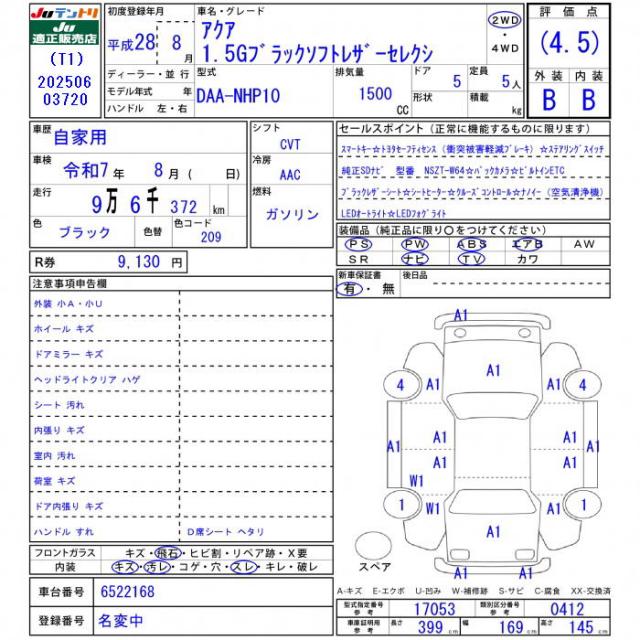 Juテントリ
Ju
適正販売店
(T1)
202506
03720
初度登録年月
平成28年 8月
ディーラー・並行
モデル年式 年
ハンドル 左・右
車名・グレード
アクア
1.5Gブラックソフトレザーセレクシ
2WD
・
4WD
型式
DAA-NHP10
排気量
1500
CC
ドア
5
形状
定員
5人
積載
kg
評価点
(4.5)
外装 内装
B B
車歴
自家用
車検
令和7年 8月( 日)
走行
9万 6千 372 km
色
ブラック
色替
色コード
209
シフト
CVT
冷房
AAC
燃料
ガソリン
R券 9,130 円
セールスポイント(正常に機能するものに限ります)
スマートキー☆トヨタセーフティセンス(衝突被害軽減ブレーキ)☆ステアリングスイッチ
純正SDナビ 型番 NSZT-W64☆バックカメラ☆ビルトインETC
ブラックレザーシート☆シートヒーター☆クルーズコントロール☆ナノイー(空気清浄機)
LEDオートライト☆LEDフォグライト
装備品(純正品に限り〇をつけてください)
PS PW ABS エアB AW
SR ナビ TV カワ
新車保証書
有・無
後日品
注意事項申告欄
外装 小A・小U
ホイール キズ
ドアミラー キズ
ヘッドライトクリア ハゲ
シート 汚れ
内張り キズ
室内 汚れ
荷室 キズ
ドア内張り キズ
ハンドル すれ D席シート ヘタリ
フロントガラス キズ・飛石・ヒビ割・リペア跡・X要
内装 キス・汚レ・コゲ・穴・スレ・キレ・破レ
車台番号 6522168
登録番号 名変中
A1
4 A1 A1 A1 4
A1 A1 A1 A1
A1 A1
W1
1 W1 A1 A1 1
A1
スペア
A-キズ E-エクボ U-凹み W-補修跡 S-サビ C-腐食 XX-交換済
型式指定番号 17053 類別区分番号 0412
車庫証明用 長さ 399 cm 幅 169 cm 高さ 145 cm